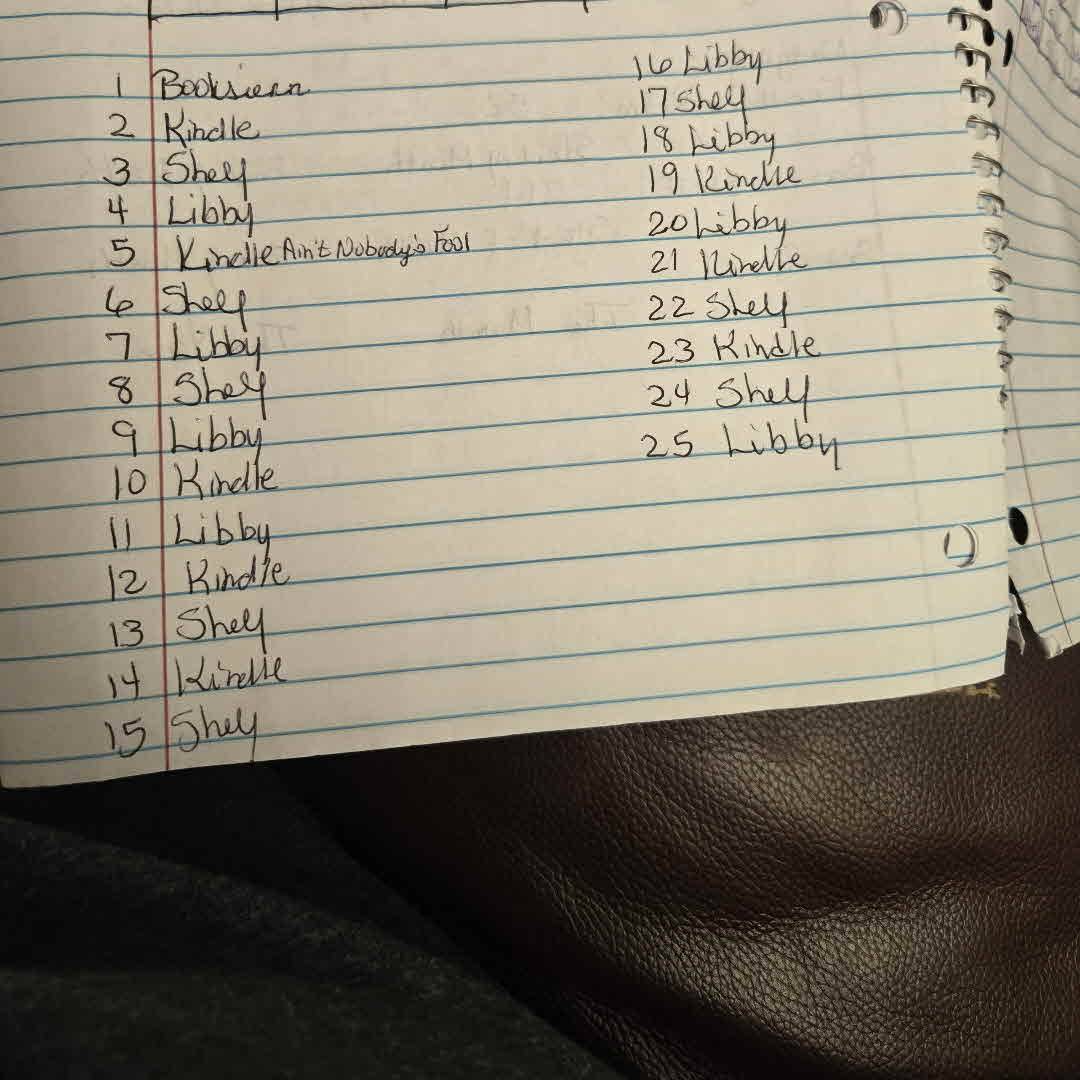 1 Booksirens
2 Kindle
3 Shelf
4 Libby
5 Kindle Ain't Nobody's Fool
6 Shelf
7 Libby
8 Shelf
9 Libby
10 Kindle
11 Libby
12 Kindle
13 Shelf
14 Kindle
15 Shelf
16 Libby
17 Shelf
18 Libby
19 Kindle
20 Libby
21 Kindle
22 Shelf
23 Kindle
24 Shelf
25 Libby